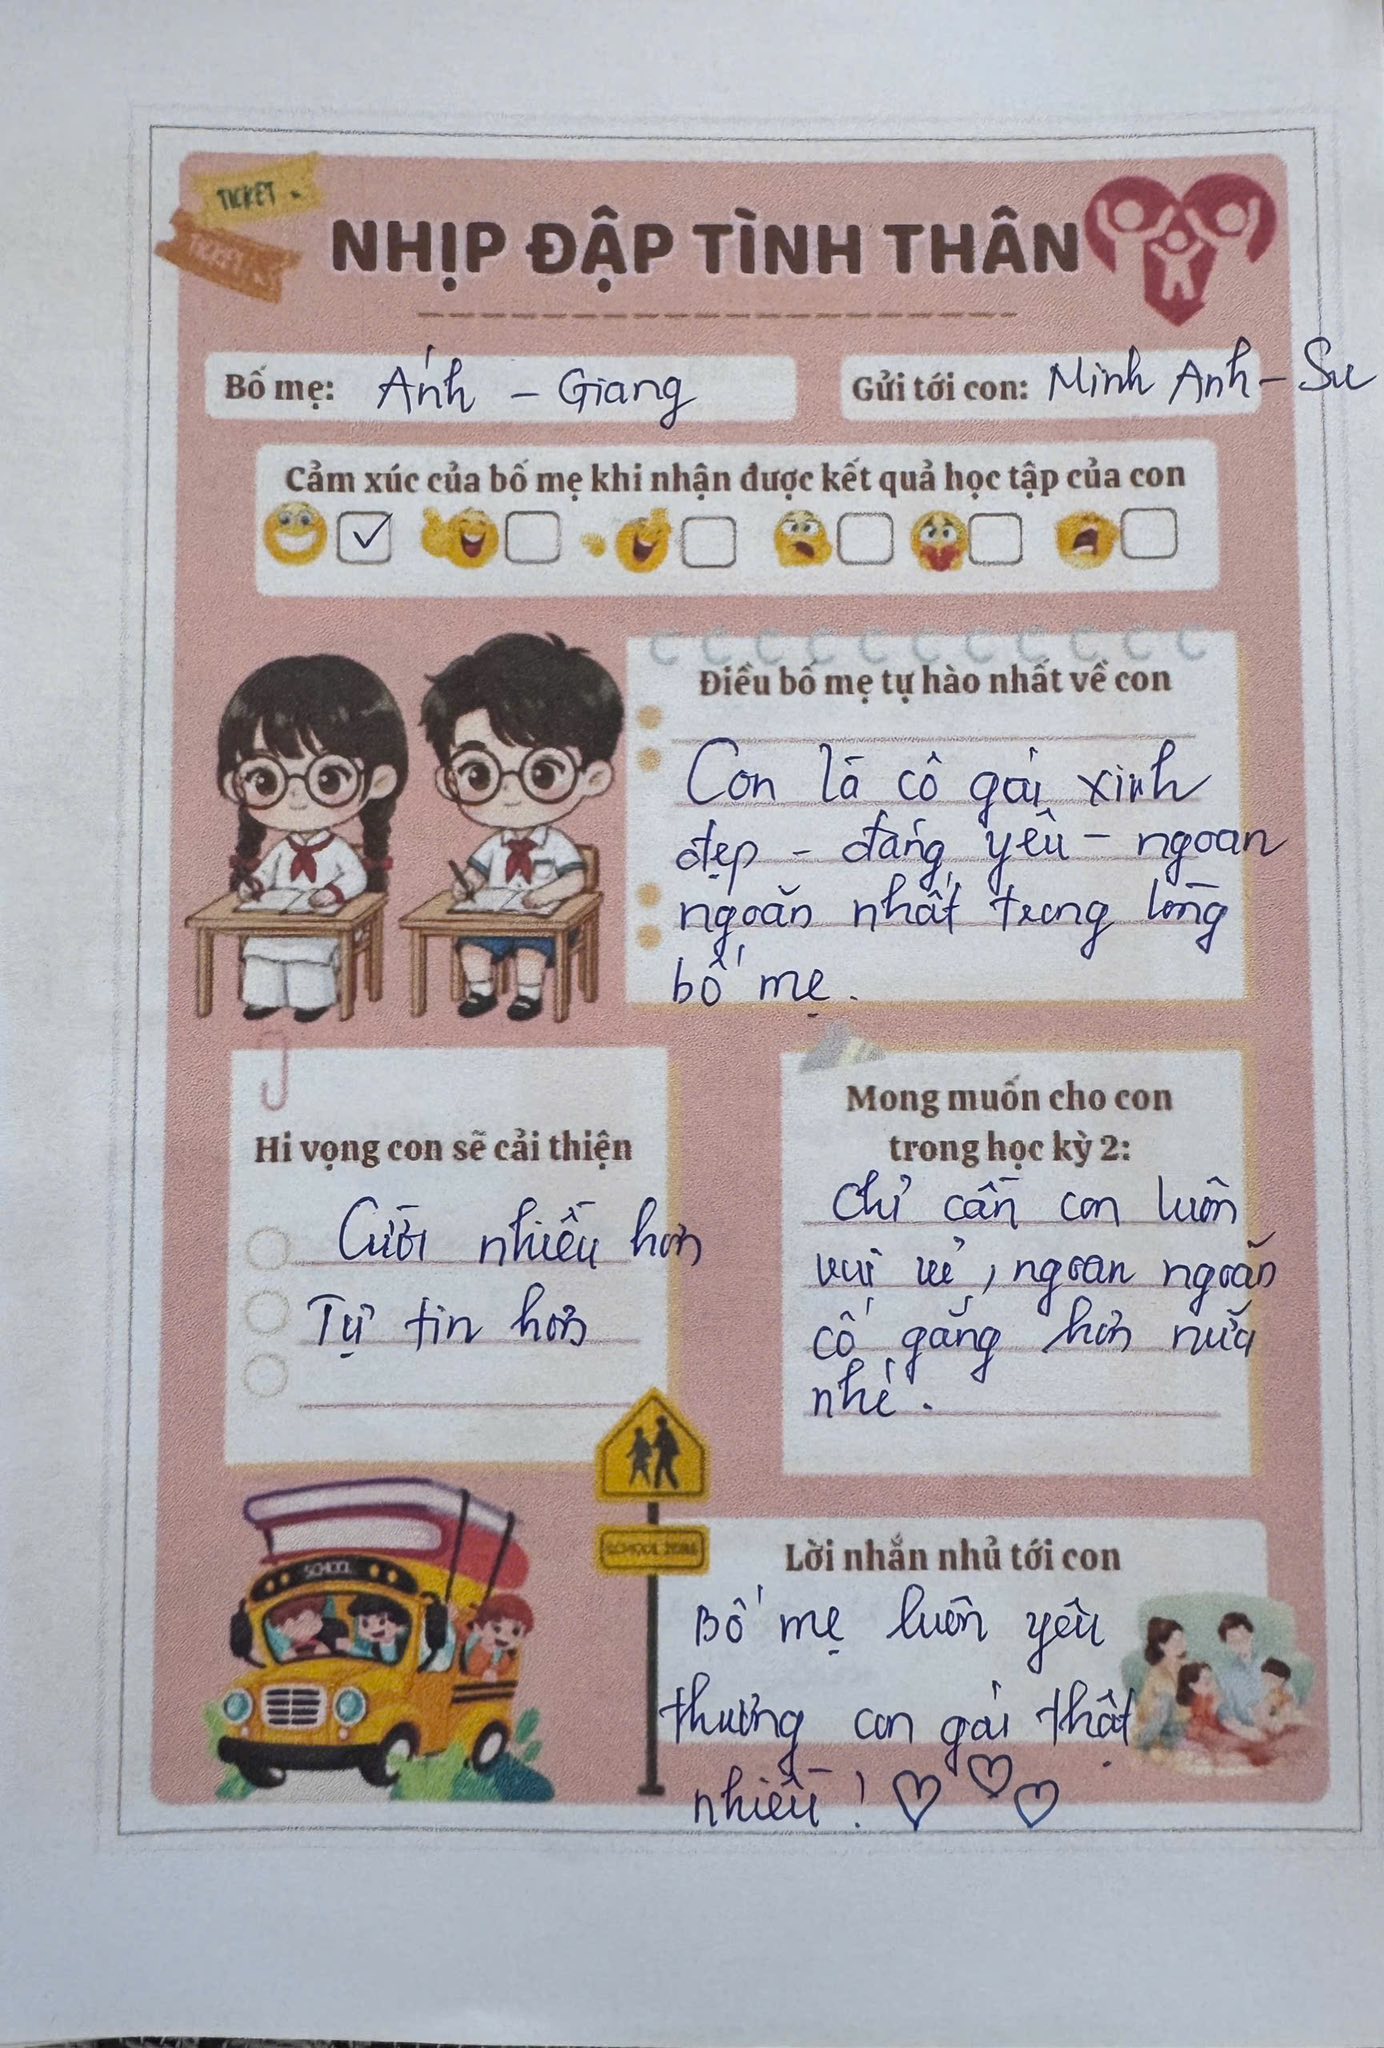 TICKET
TICKET
NHỊP ĐẬP TÌNH THÂN
Bố mẹ: Ánh - Giang
Gửi tới con: Minh Anh - Su
Cảm xúc của bố mẹ khi nhận được kết quả học tập của con
Điều bố mẹ tự hào nhất về con
Con là cô gái xinh
đẹp - đáng yêu - ngoan
ngoãn nhất trong lòng
bố mẹ.
Hi vọng con sẽ cải thiện
Cười nhiều hơn
Tự tin hơn
Mong muốn cho con
trong học kỳ 2:
Chỉ cần con luôn
vui vẻ, ngoan ngoãn
cố gắng hơn nữa
nhé.
SCHOOL
SCHOOL ZONE
Lời nhắn nhủ tới con
Bố mẹ luôn yêu
thương con gái thật
nhiều! ♡ ♡ ♡